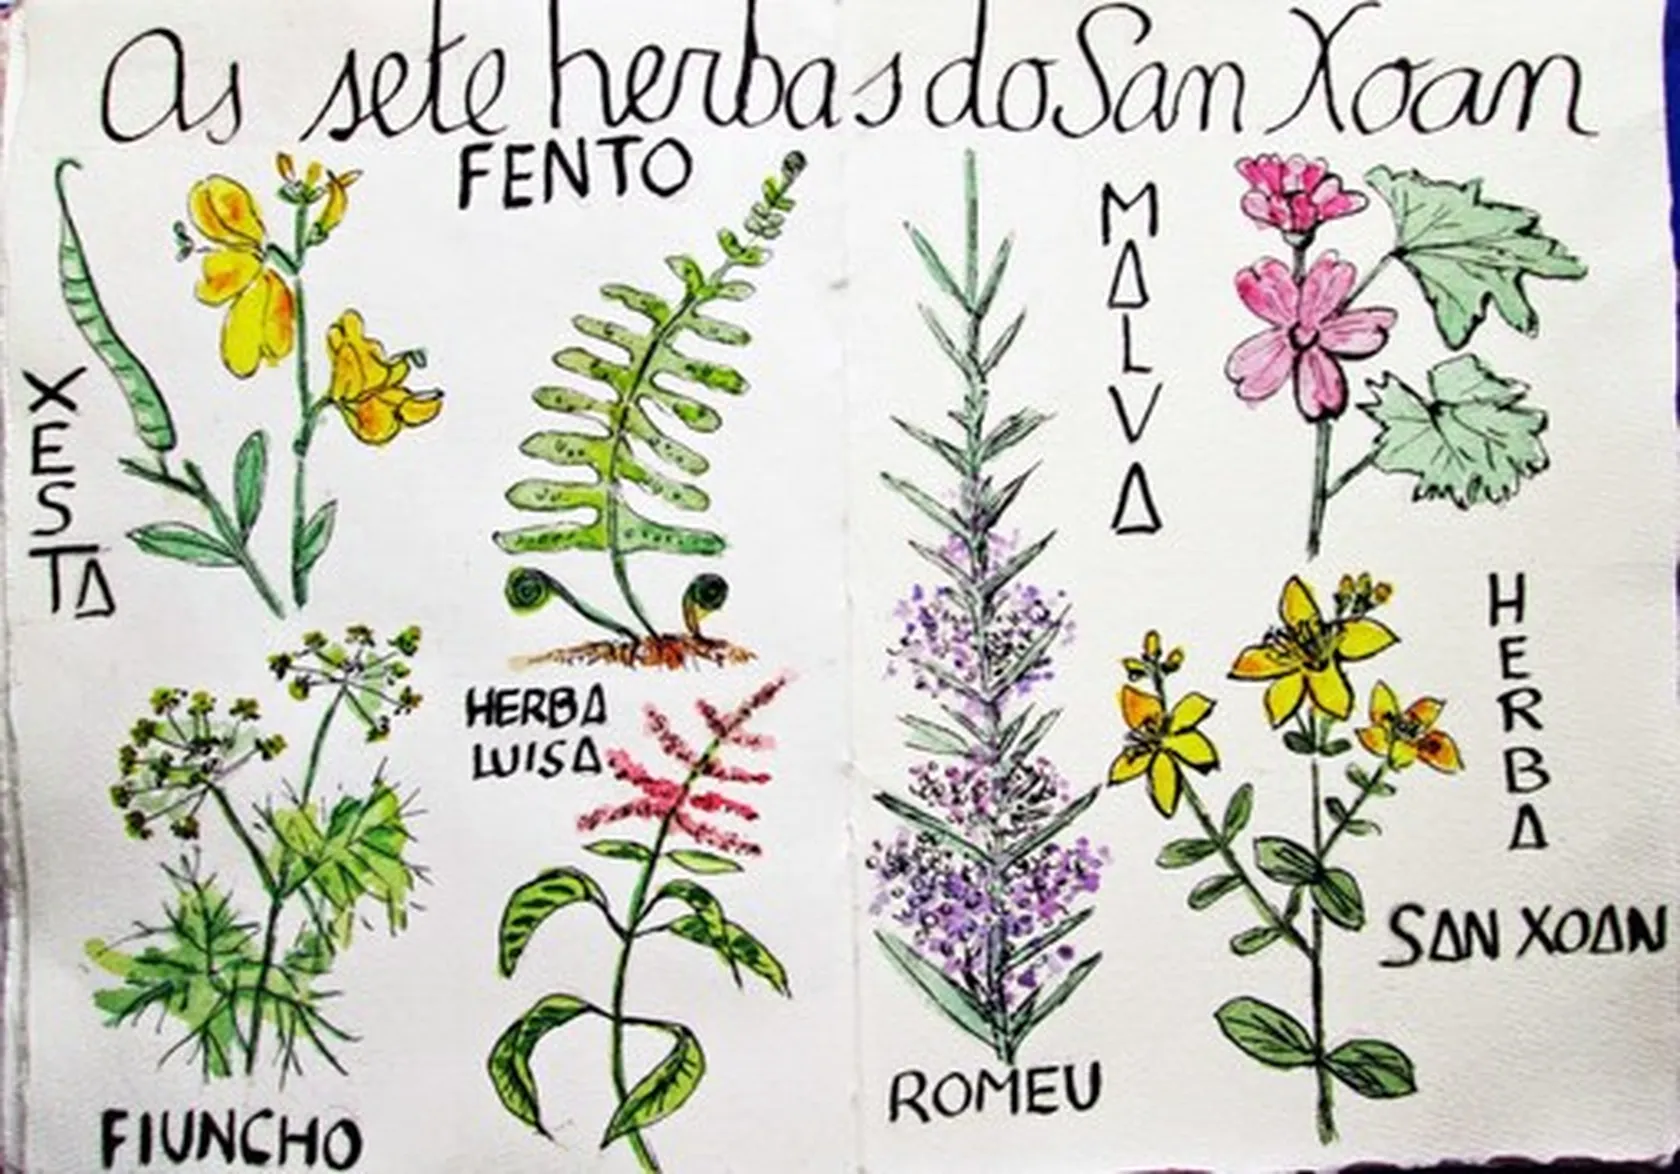 As sete herbas do San Xoan
FENTO
XESTA
MALVA
HERBA
LUISA
HERBA
SAN XOAN
ROMEU
FIUNCHO